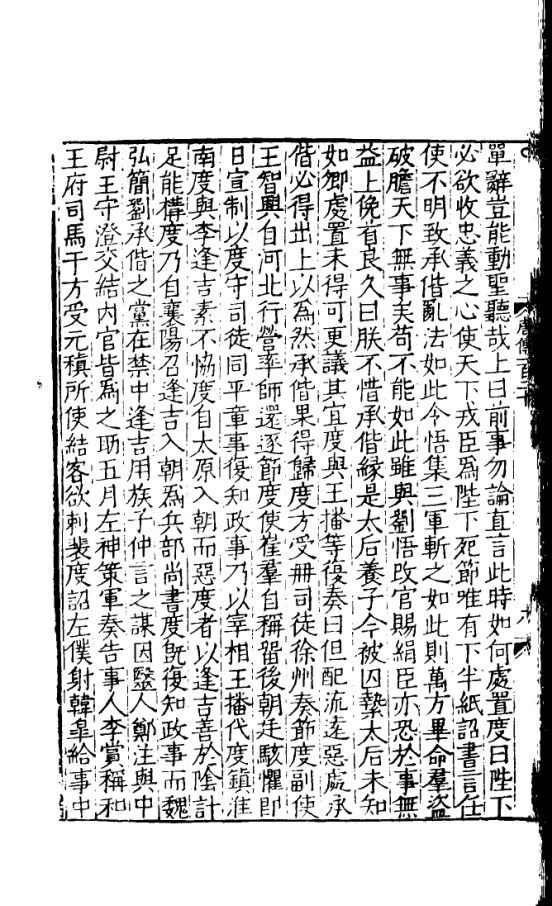 單辭豈能動聖聽哉上曰前事勿論直言此時如何處置度曰陛下
必欲收忠義之心使天下戎臣為陛下死節唯有下半紙詔書言任
使不明致承偕亂法如此今悟集三軍斬之如此則萬方畢命羣盜
破膽天下無事矣苟不能如此雖與劉悟改官賜絹臣亦恐於事無
益上俛首良久曰朕不惜承偕緣是太后養子今被囚縶太后未知
如卿處置未得可更議其宜度與王播等復奏曰但配流遠惡處承
偕必得出上以為然承偕果得歸度方受冊司徒徐州奏節度副使
王智興自河北行營率師還逐節度使崔羣自稱留後朝廷駭懼即
日宣制以度守司徒同平章事復知政事乃以宰相王播代度鎮淮
南度與李逢吉素不恊度自太原入朝而惡度者以逢吉善於陰計
足能構度乃自襄陽召逢吉入朝為兵部尚書度既復知政事而魏
弘簡劉承偕之黨在禁中逢吉用族子仲言之謀因醫人鄭注與中
尉王守澄交結內官皆為之助五月左神策軍奏告事人李賞稱和
王府司馬于方受元稹所使結客欲刺裴度詔左僕射韓臯給事中